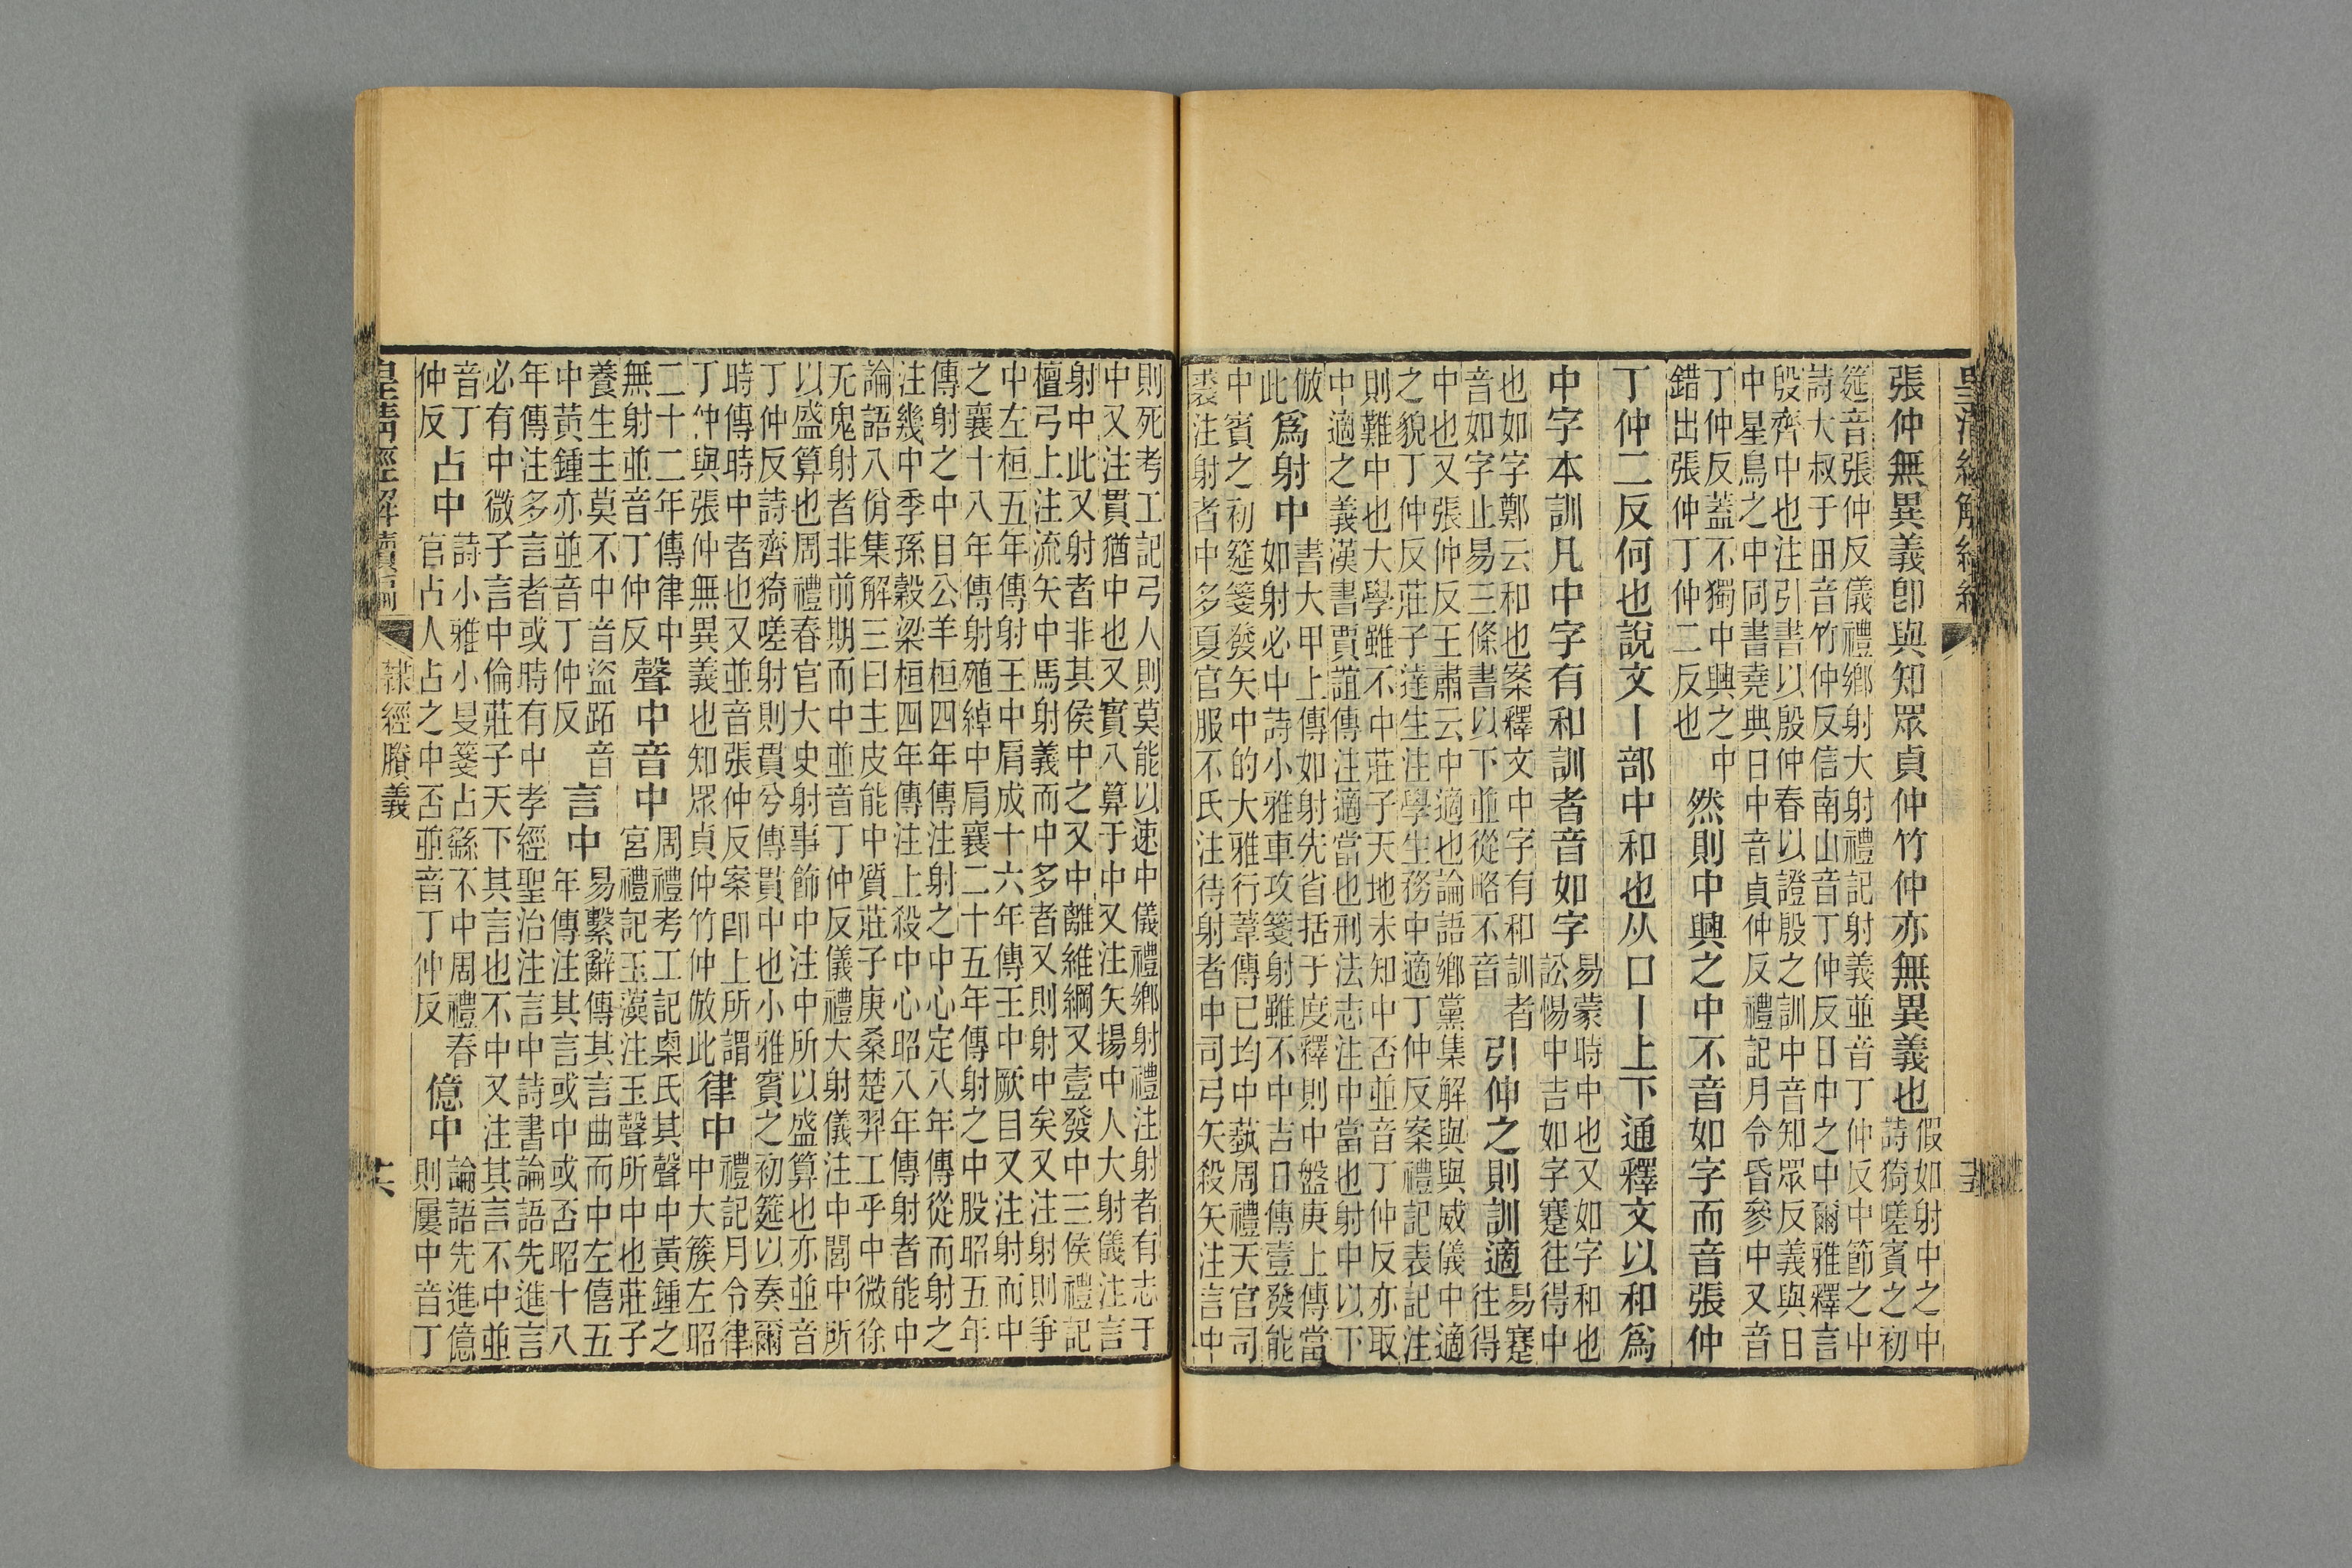 張仲無異義卽與知眾貞仲竹仲亦無異義也
假如射中之中
詩猗嗟賓之初
筵音張仲反儀禮鄉射大射禮記射義並音丁仲反中節之中
詩大叔于田音竹仲反信南山音丁仲反日中之中爾雅釋言
殷齊中也注引書以殷仲春以證殷之訓中音知眾反義與日
中星鳥之中同書堯典日中音貞仲反禮記月令昏參中又音
丁仲反蓋不獨中興之中
錯出張仲丁仲二反也
然則中興之中不音如字而音張仲
丁仲二反何也說文丨部中和也从口丨上下通釋文以和爲
中字本訓凡中字有和訓者音如字
易蒙時中也又如字和也
訟惕中吉如字蹇往得中
也如字鄭云和也案釋文中字有和訓者
音如字止易三條書以下並從略不音
引仲之則訓適
易蹇
往得
中也又張仲反王肅云中適也論語鄉黨集解與與威儀中適
之貌丁仲反莊子達生注學生務中適丁仲反案禮記表記注
則難中也大學雖不中莊子天地未知中否並音丁仲反亦取
中適之義漢書賈誼傳注適當也刑法志注中當也射中以下
倣
此
爲射中
書大甲上傳如射先省括于度釋則中盤庚上傳當
如射必中詩小雅車攻箋射雖不中吉日傳壹發能
中賓之初筵箋發矢中的大雅行葦傳已均中蓺周禮天官司
裘注射者中多夏官服不氏注待射者中司弓矢殺矢注言中
則死考工記弓人則莫能以速中儀禮鄉射禮注射者有志于
中又注貫猶中也又實八算于中又注矢揚中人大射儀注言
射中此又射者非其侯中之又中離維綱又壹發中三侯禮記
檀弓上注流矢中馬射義而中多者又則射中矣又注射則爭
中左桓五年傳射王中肩成十六年傳王中厥目又注射而中
之襄十八年傳射殖綽中肩襄二十五年傳射之中股昭五年
傳射之中目公羊桓四年傳注射之中心定八年傳從而射之
注幾中季孫穀梁桓四年傳注上殺中心昭八年傳射者能中
論語八佾集解三曰主皮能中質莊子庚桑楚羿工乎中微徐
无鬼射者非前期而中並音丁仲反儀禮大射儀注中閭中所
以盛算也周禮春官大史射事飾中注中所以盛算也亦並音
丁仲反詩齊猗嗟射則貫兮傳貫中也小雅賓之初筵以奏爾
時傳時中者也又並音張仲反案卽上所謂
丁仲與張仲無異義也知眾貞仲竹仲倣此
律中
禮記月令律
中大簇左昭
二十二年傳律中
無射並音丁仲反
聲中音中
周禮考工記㮚氏其聲中黃鍾之
宮禮記玉漢注玉聲所中也莊子
養生主莫不中音盜跖音
中黃鍾亦並音丁仲反
言中
易繫辭傳其言曲而中左僖五
年傳注其言或中或否昭十八
年傳注多言者或時有中孝經聖治注言中詩書論語先進言
必有中微子言中倫莊子天下其言也不中又注其言不中並
音丁
仲反
占中
詩小雅小旻箋占繇不中周禮春
官占人占之中否並音丁仲反
億中
論語先進億
則屢中音丁
皇清經解續編
隸經賸義
六